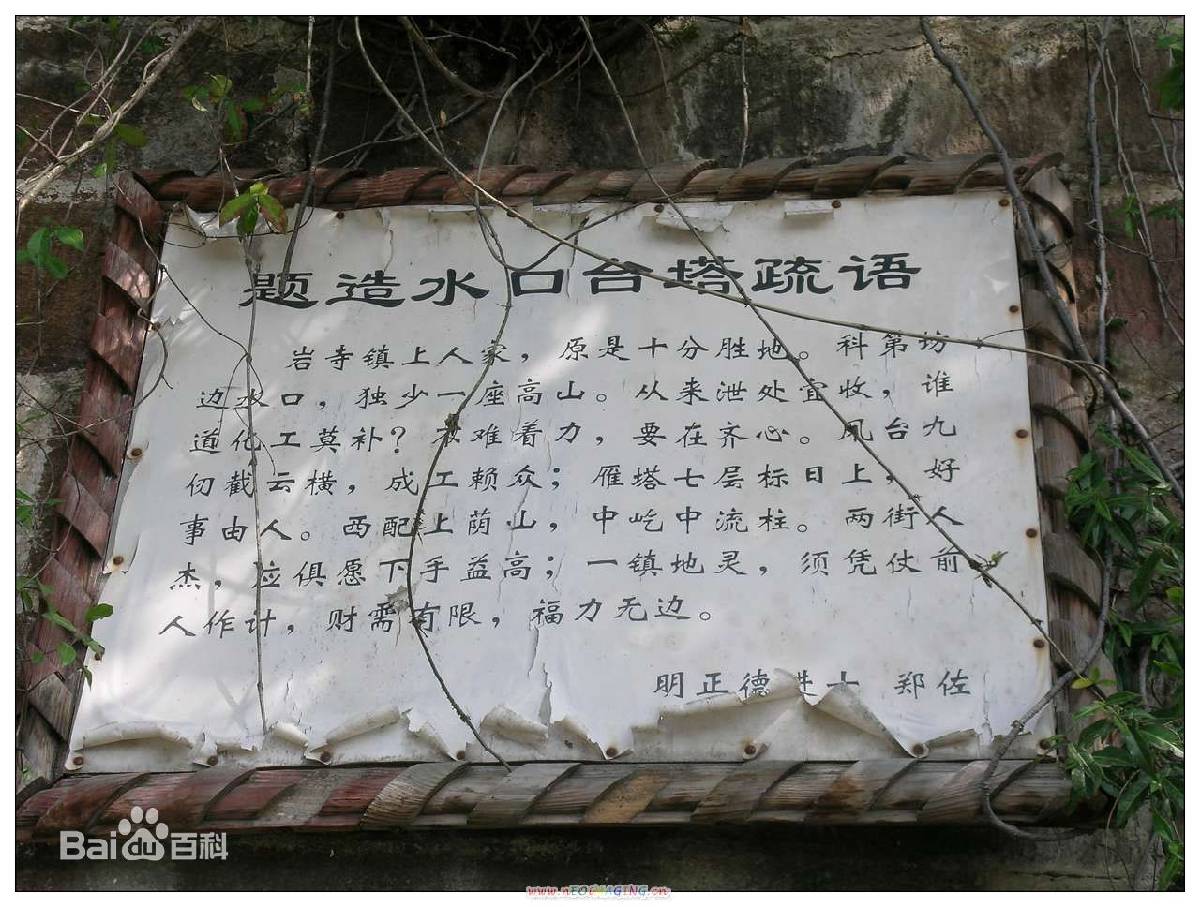 题造水口台塔疏语
岩寺镇上人家，原是十分胜地。科第坊
边水口，独少一座高山。从来泄处宜收，谁
道化工莫补？最难着力，要在齐心。凤台九
仞截云横，成工赖众；雁塔七层标日上，好
事由人。西配上荫山，中屹中流柱。两街人
杰，应俱愿下手益高；一镇地灵，须凭仗前
人作计，财需有限，福力无边。
明正德进士 郑佐
Bai百科
www.nEOiMAGING.cn